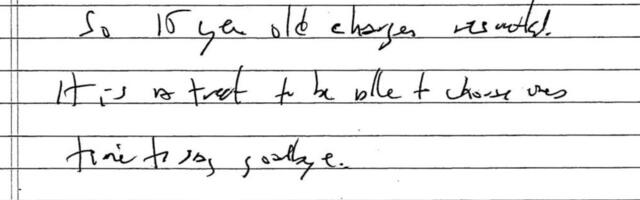 So 15 year old changes resulted.
It is a treat to be able to choose ones
time to say goodbye.